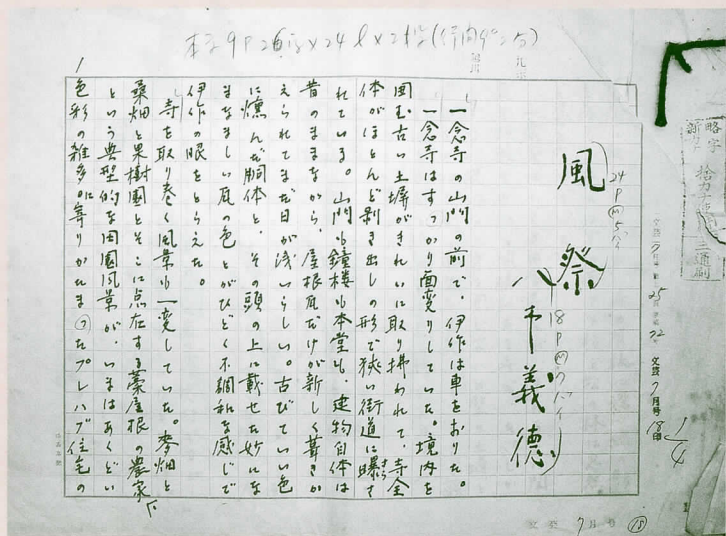 本文9P26字×24ℓ×2段(行間9º二分)
風祭
24P
八木義德
18P
一念寺の山門の前で、伊作は車をおりた。
一念寺はすっかり面変りしていた。境内を
囲む古い土塀がきれいに取り拂われて、寺全
体がほとんど剥き出しの形で狭い街道に曝さ
れている。山門も鐘楼も本堂も、建物自体は
昔のままながら、屋根瓦だけが新しく葺きか
えられてまだ日が浅いらしい。古びていい色
に燻んだ胴体と、その頭の上に載せた妙にな
まなましい瓦の色とがひどく不調和な感じで
伊作の眼をとらえた。
寺を取り巻く風景も一変していた。麥畑と
桑畑と果樹園とそこに点在する藁屋根の農家
という典型的な田園風景が、いまはあくどい
色彩の雑多に寄りかたまったプレハブ住宅の
文芸7月号
18印
1/4
文芸 7月号 18